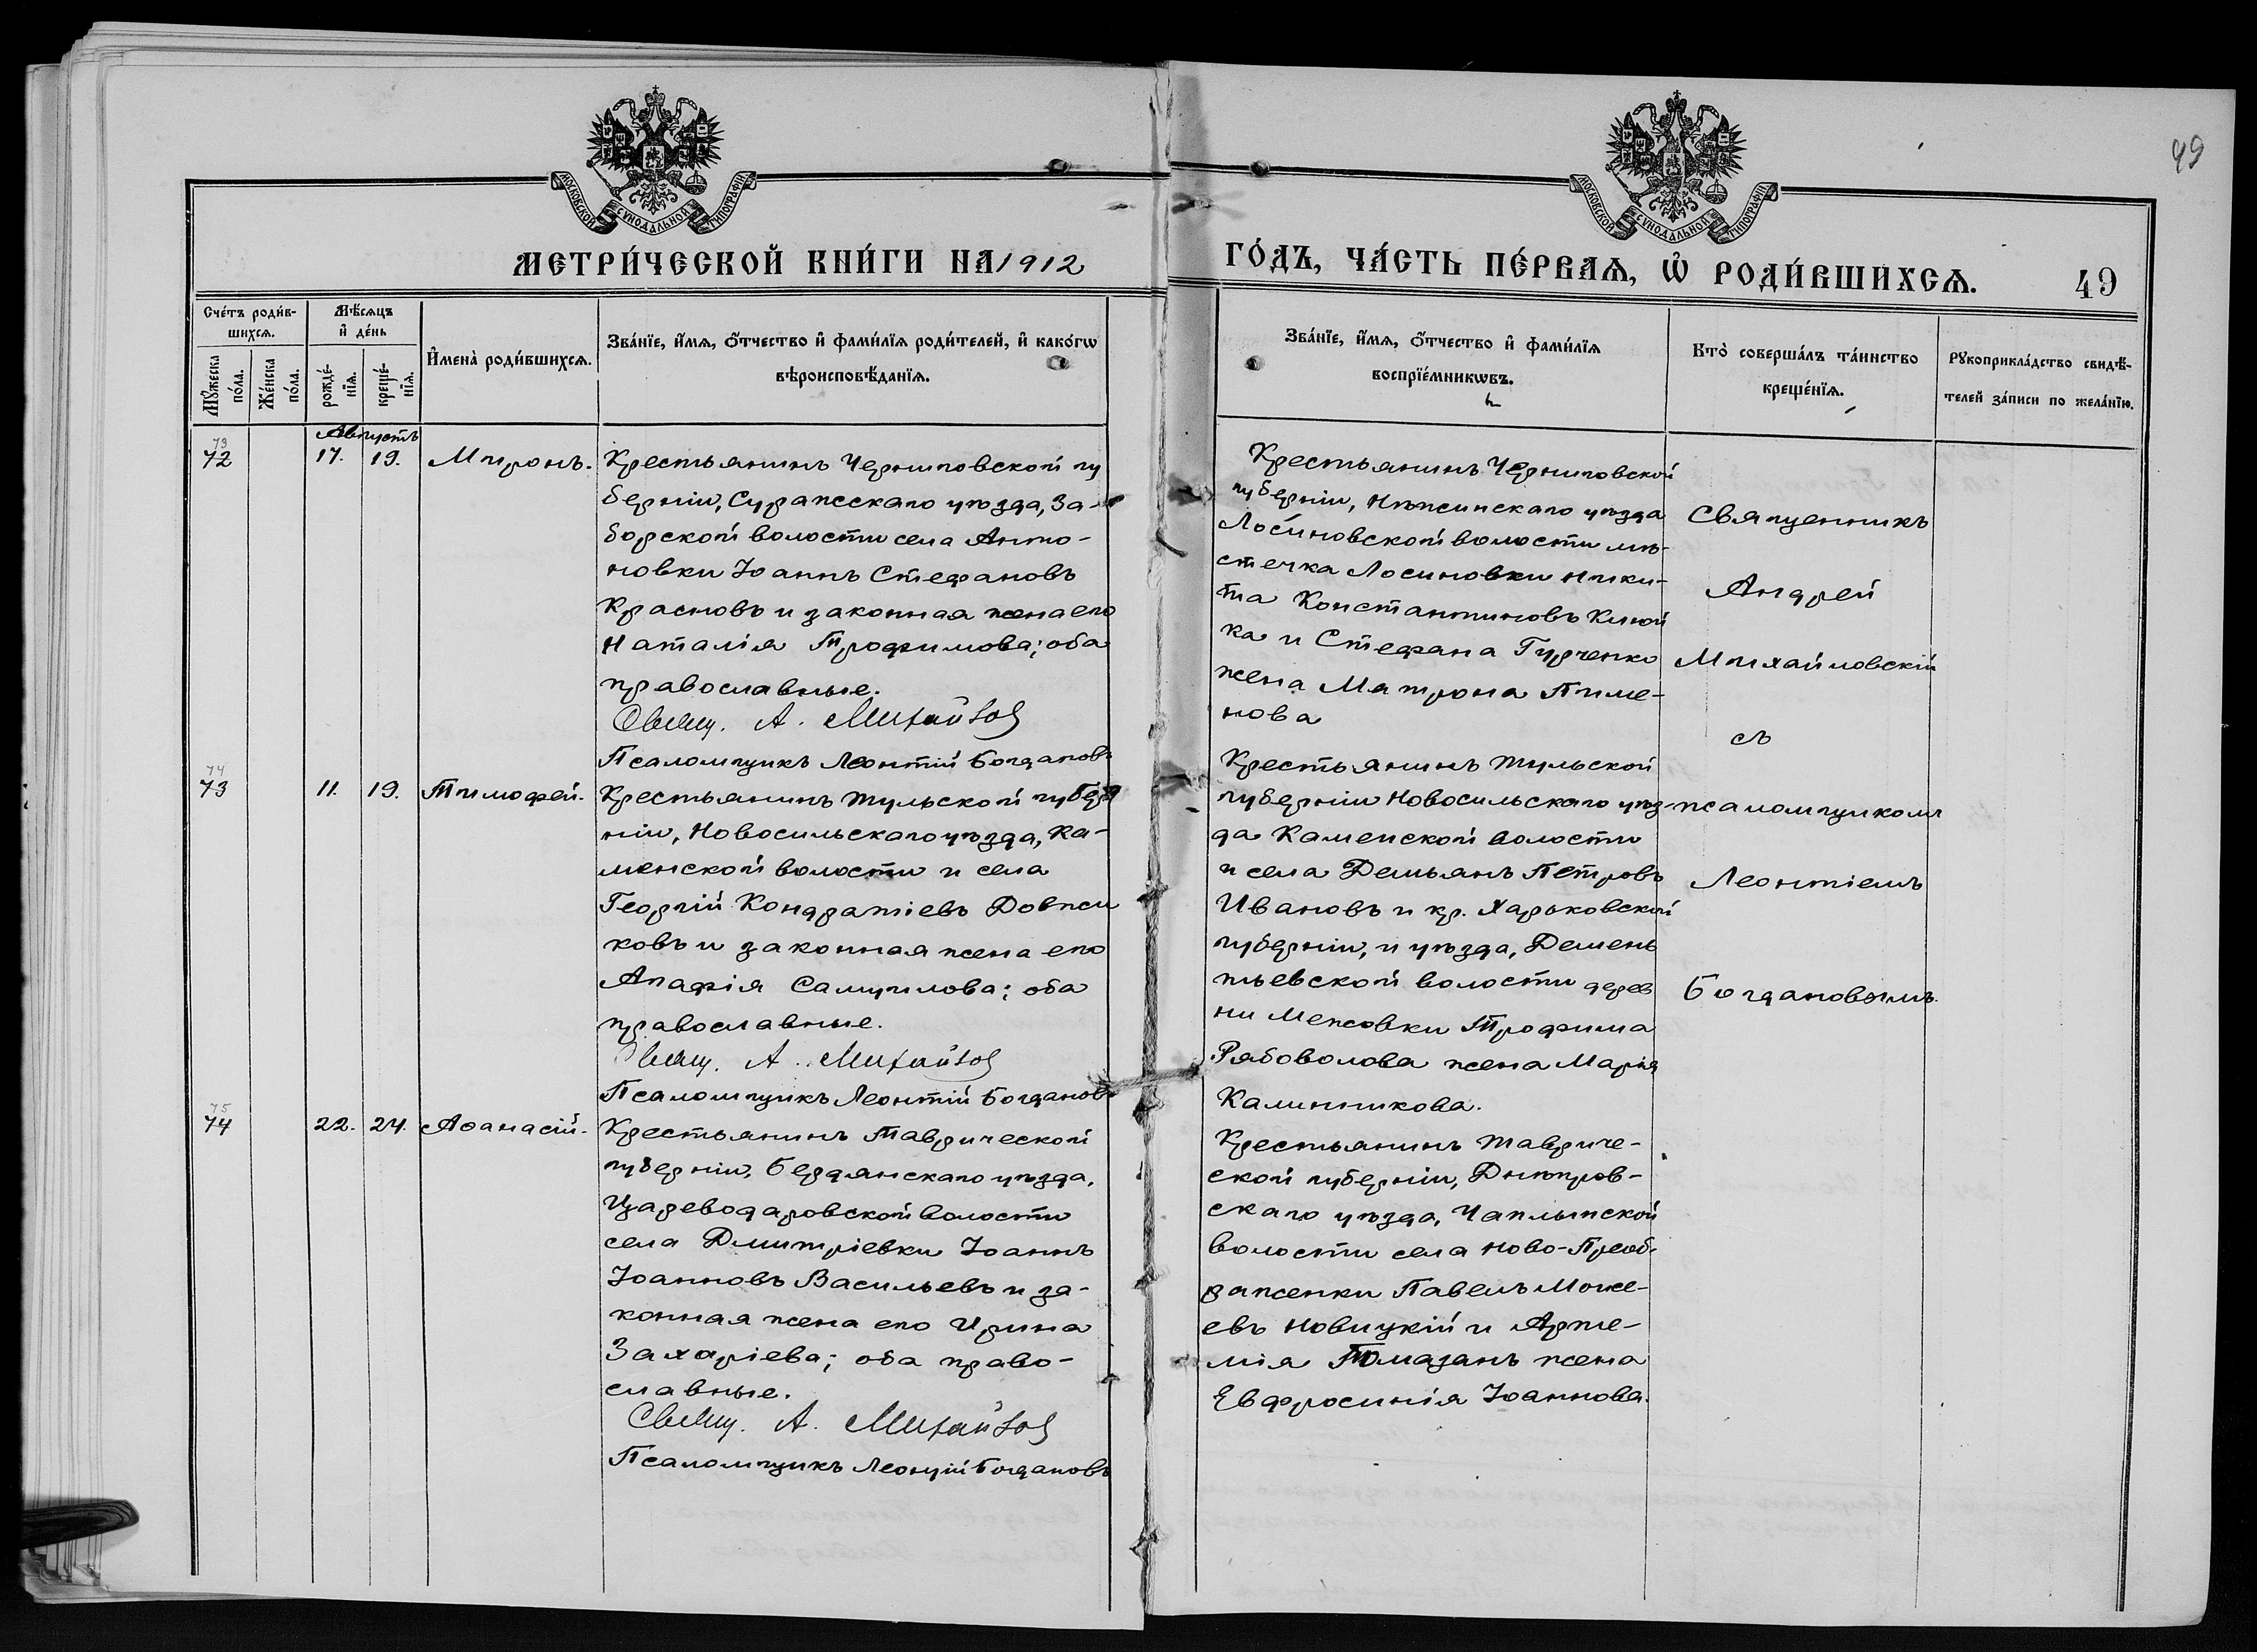 49
МОСКОВСКОЙ СѴНОДАЛЬНОЙ ТИПОГРАФІИ
МОСКОВСКОЙ СѴНОДАЛЬНОЙ ТИПОГРАФІИ
МЕТРИ́ЧЕСКОЙ КНИ́ГИ НА 1912
ГО́ДЪ, ЧА́СТЬ ПЕ́РВАѦ, Ѡ҆ РОДИ́ВШИХСѦ. 49
Сче́тъ роди́в-
шихсѧ.
Мꙋ́жеска
по́ла.
Же́нска
по́ла.
Мѣ́сѧцъ
и҆ де́нь
рожде́-
нїѧ.
креще́-
нїѧ.
И҆мена̀ роди́вшихсѧ.
Зва́нїе, и҆́мѧ, ѻ҆́тчество и҆ фами́лїѧ роди́телей, и҆ како́гѡ
вѣроисповѣ́данїѧ.
Зва́нїе, и҆́мѧ, ѻ҆́тчество и҆ фами́лїѧ
воспрїе́мникѡвъ.
Кто̀ соверша́лъ та́инство
креще́нїѧ.
Рꙋкоприкла́дство свидѣ́-
телей за́писи по жела́нїю.
Августъ
73
72 17. 19. Миронъ.
Крестьянинъ Черниговской гу
берніи, Суражскаго уѣзда, За-
борской волости села Анто-
новки Іоаннъ Стефановъ
Красновъ и законная жена его
Наталія Трофимова; оба
православные.
Свящ. А. Михайлов
Псаломщикъ Леонтій Богдановъ
Крестьянинъ Черниговской
губерніи, Нѣжинскаго уѣзда
Лосиновской волости мѣ-
стечка Лосиновки Ники-
та Константиновъ Клюй
ка и Стефана Гурченко
жена Матрона Пиме-
нова
Священникъ
Андрей
Михайловскій
съ
псаломщикомъ
Леонтіемъ
Богдановымъ.
74
73 11. 19. Тимофей.
Крестьянинъ Тульской губер
ніи, Новосильскаго уѣзда, Ка-
менской волости и села
Георгій Кондратіевъ Довжи
ковъ и законная жена его
Агафія Самуилова; оба
православные.
Свящ. А. Михайлов
Псаломщикъ Леонтій Богдановъ
Крестьянинъ Тульской
губерніи Новосильскаго уѣз-
да Каменской волости
и села Демьянъ Петровъ
Ивановъ и кр. Харьковской
губерніи, и уѣзда, Демень
тьевской волости дерев
ни Межовки Трофима
Рябоволова жена Марія
Калинникова.
75
74 22. 24. Аѳанасій.
Крестьянинъ Таврической
губерніи, Бердянскаго уѣзда,
Цареводаровской волости
села Дмитріевки Іоаннъ
Іоанновъ Васильевъ и за-
конная жена его Ирина
Захаріева; оба право-
славные.
Свящ. А. Михайлов
Псаломщикъ Леонтій Богдановъ
Крестьянинъ Тавриче-
ской губерніи, Днѣпров-
скаго уѣзда, Чаплынской
волости села Ново-Преоб-
раженки Павелъ Моисе-
евъ Новицкій и Арте-
мія Томазанъ жена
Евфросинія Іоаннова.